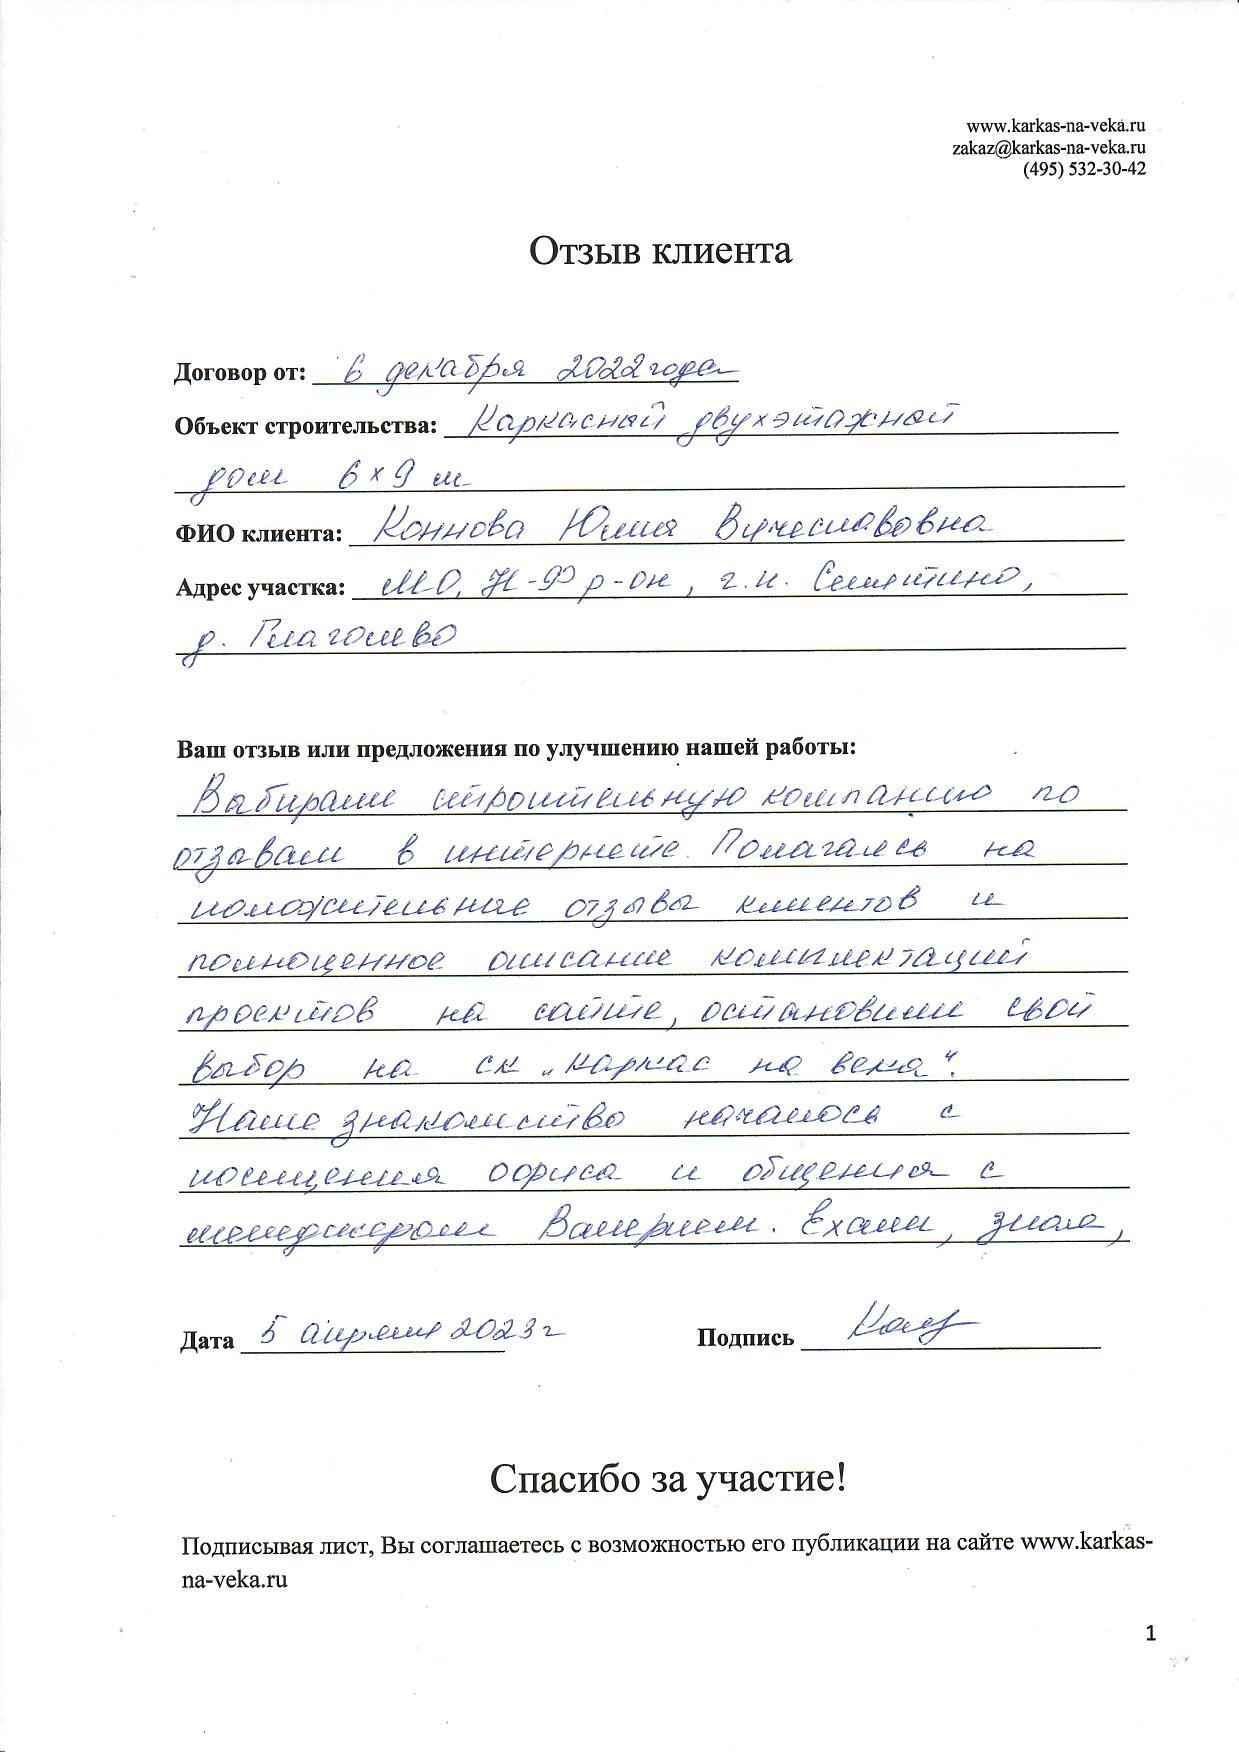 www.karkas-na-veka.ru
zakaz@karkas-na-veka.ru
(495) 532-30-42
Отзыв клиента
Договор от: 6 декабря 2022 года
Объект строительства: Каркасный двухэтажный
дом 6×9 м
ФИО клиента: Коннова Юлия Вячеславовна
Адрес участка: МО, Н-Ф р-он, г.п. Селятино,
д. Глаголево
Ваш отзыв или предложения по улучшению нашей работы:
Выбирали строительную компанию по
отзывам в интернете. Полагаясь на
положительные отзывы клиентов и
полноценное описание комплектаций
проектов на сайте, остановили свой
выбор на ск „каркас на века“.
Наше знакомство началось с
посещения офиса и общения с
менеджером Валерием. Ехали, зная,
Дата 5 апреля 2023 г
Подпись
Спасибо за участие!
Подписывая лист, Вы соглашаетесь с возможностью его публикации на сайте www.karkas-
na-veka.ru
1